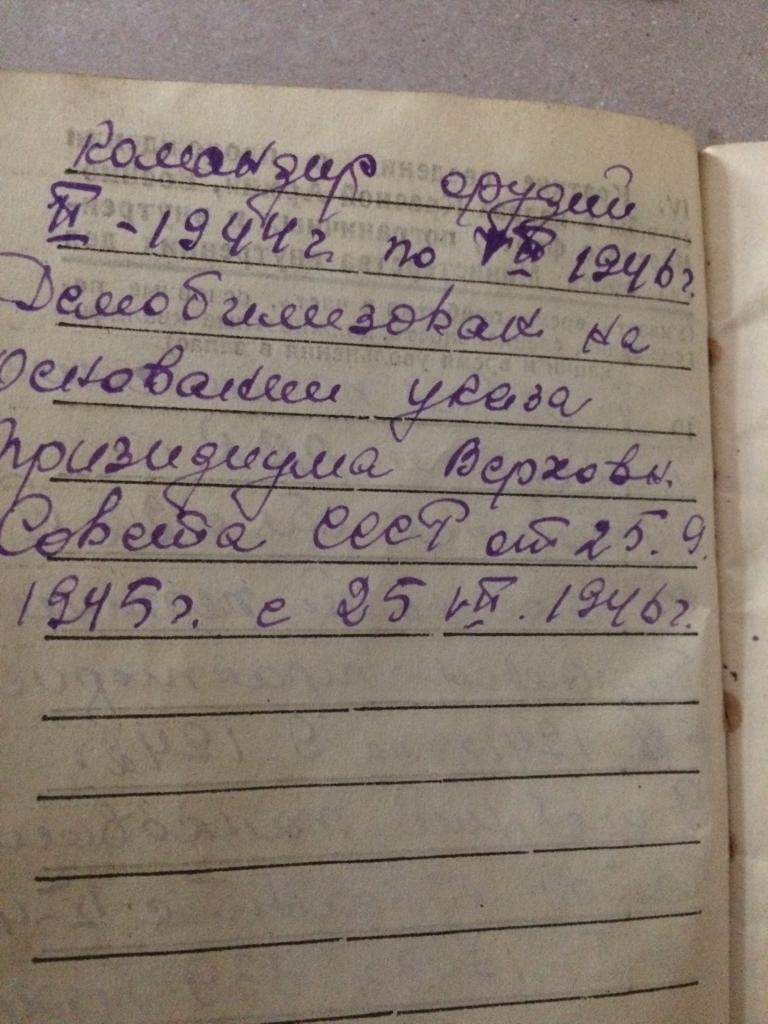 Командир орудий
II - 1944г. по VII 1946г.
Демобилизован на
Основании указа
Призидиума Верховн.
Совета СССР от 25.9.
1945г. с 25 VII. 1946г.